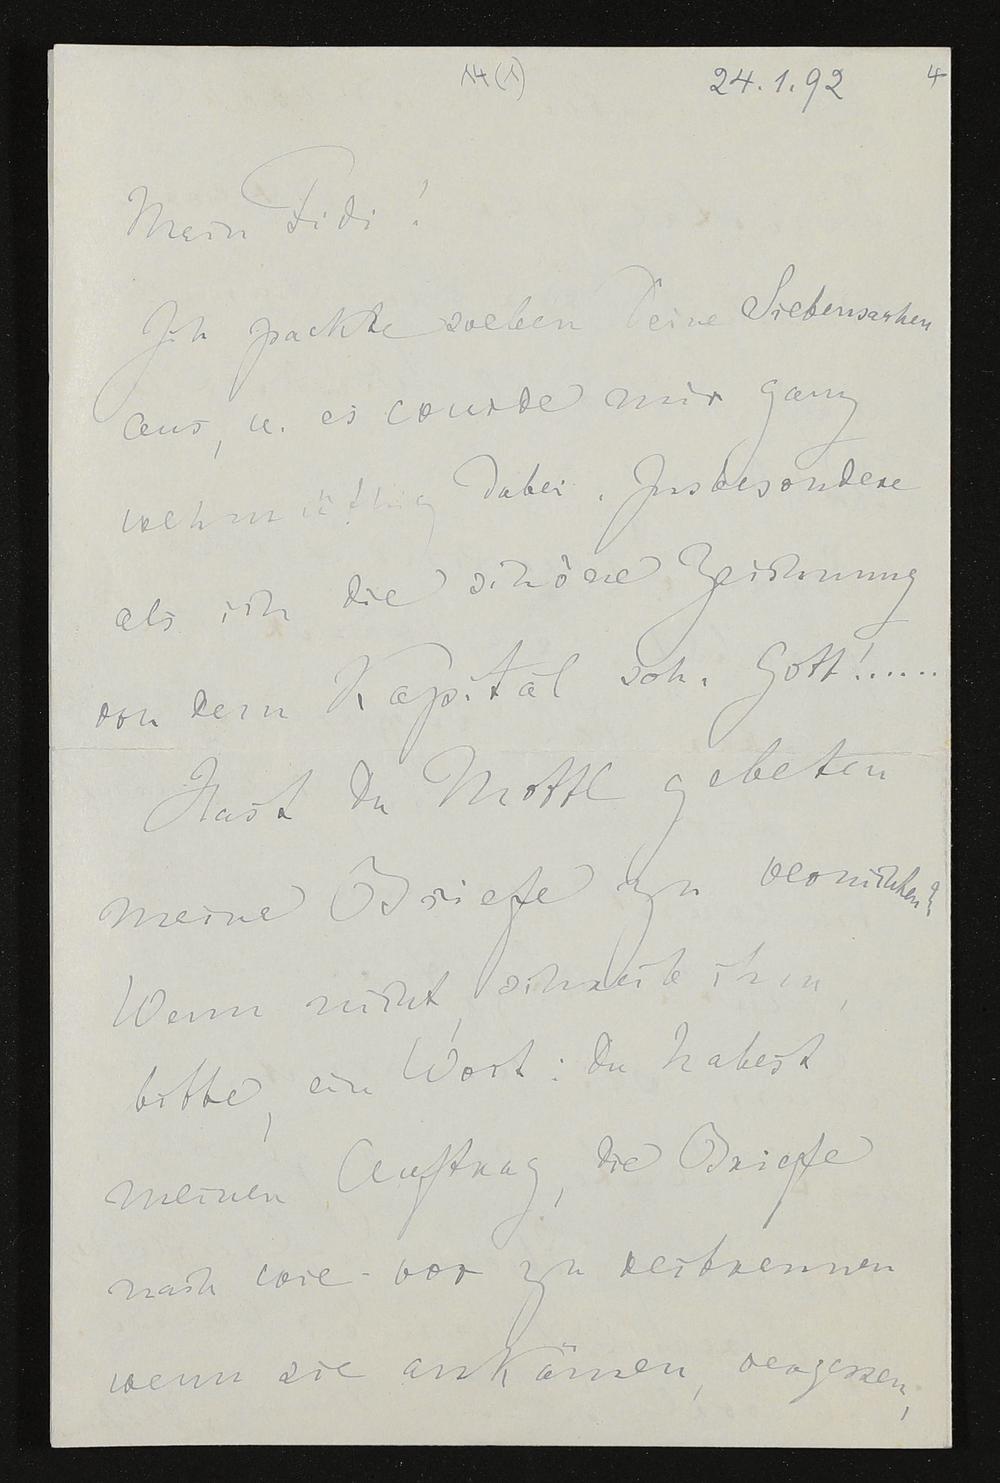 14(1) 24.1.92 4
Mein Fidi!
Ich packte soeben Deine Siebensachen
aus, u. es wurde mir ganz
wehmüthig dabei. Insbesondere
als ich die schöne Zeichnung
von dem Kapitäl sah. Gott!......
Hast Du Mottl gebeten
meine Briefe zu vernichten?
Wenn nicht, schreib ihm,
bitte, ein Wort: Du habest
meinen Auftrag, die Briefe
nach wie vor zu verbrennen
wenn sie ankämen, vergessen,